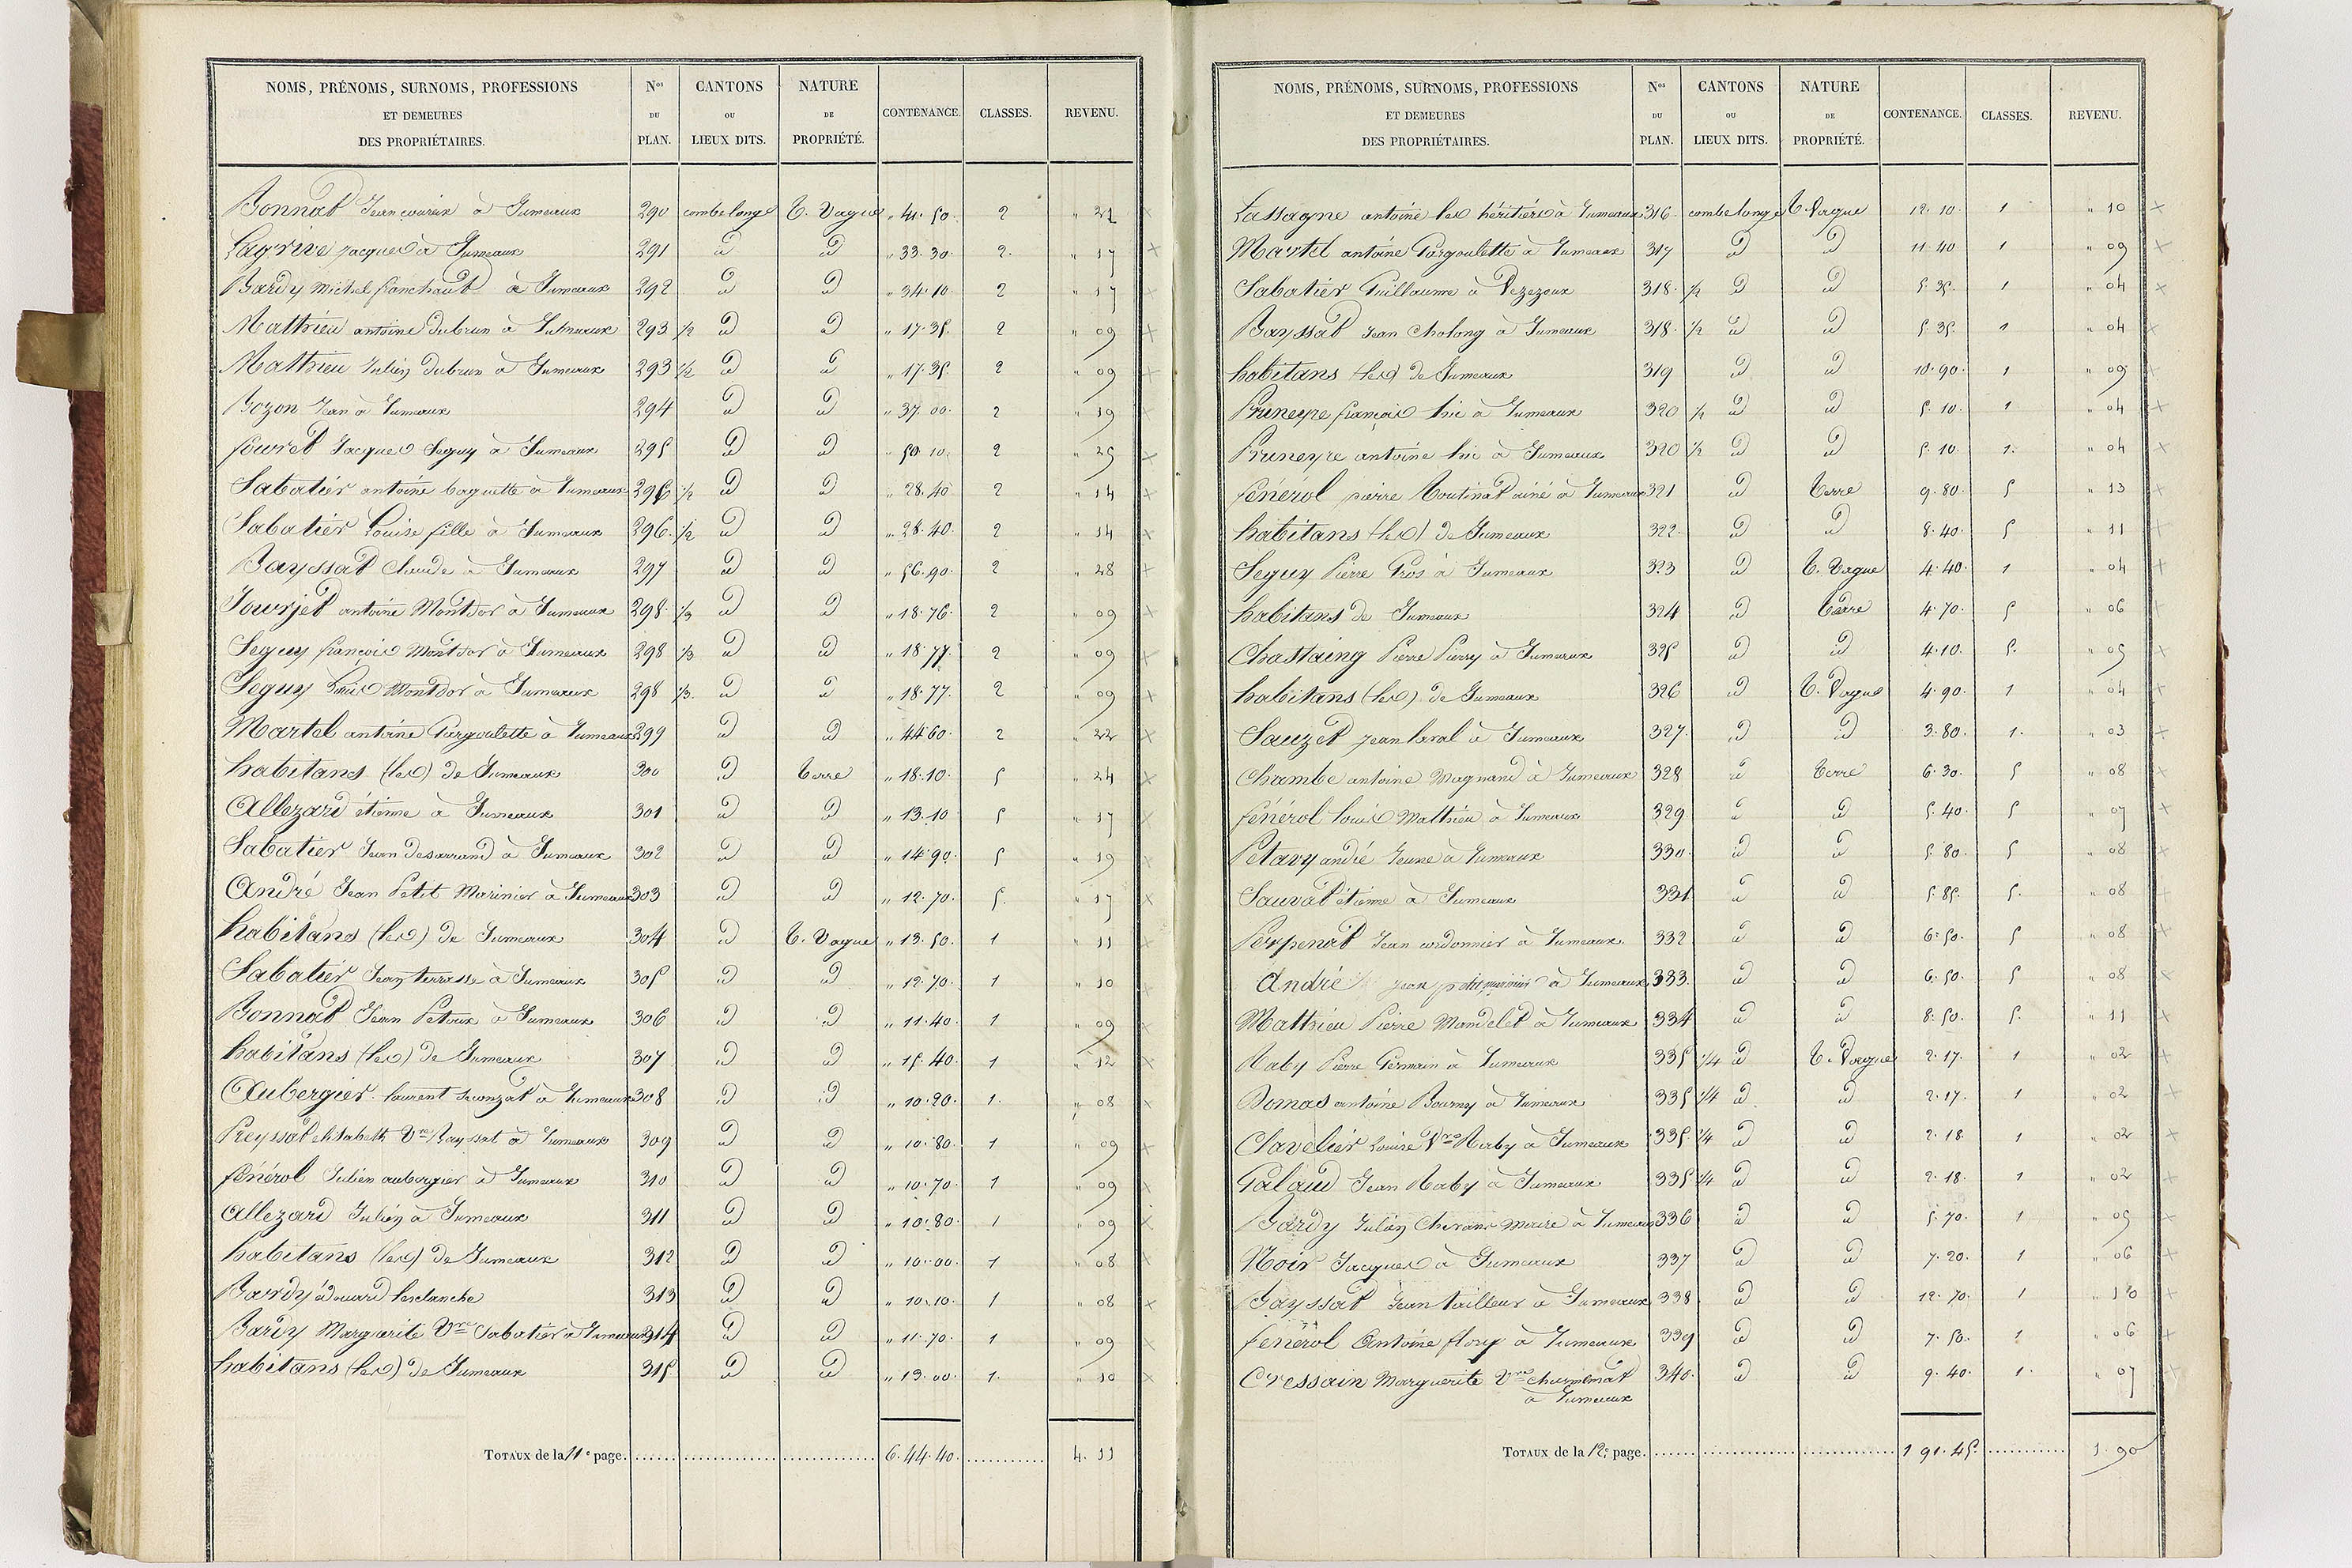 NOMS, PRÉNOMS, SURNOMS, PROFESSIONS ET DEMEURES DES PROPRIÉTAIRES. Nos DU PLAN. CANTONS OU LIEUX DITS. NATURE DE PROPRIÉTÉ. CONTENANCE. CLASSES. REVENU.
Bonnat Jean à Jumeaux 290 combelonge T. Vague " 41.50. 2 " 21
Lagrive jacques à Jumeaux 291 id id " 33.30. 2. " 17
Bardy Michel franchaut à Jumeaux 292 id id " 34.10 2 " 17
Matthieu antoine dubrun à Jumeaux 293 1/2 id id " 17.35. 2 " 09
Matthieu Julien dubrun à Jumeaux 293 1/2 id id " 17.35. 2 " 09
Bozon Jean à Jumeaux 294 id id " 37.00. 2 " 19
fouret Jacques Seguy à Jumeaux 295 id id " 50.10. 2 " 25
Sabatier antoine baguette à Jumeaux 296 1/2 id id " 28.40 2 " 14
Sabatier Louise fille à Jumeaux 296. 1/2 id id " 28.40. 2 " 14
Bayssat Claude à Jumeaux 297 id id " 56.90. 2 " 28
Tourjet antoine Montdor à Jumeaux 298. 1/3 id id " 18.76. 2 " 09
Seguy françois Montdor à Jumeaux 298 1/3 id id " 18.77. 2 " 09
Seguy Louis Montdor à Jumeaux 298 1/3. id id " 18.77. 2 " 09
Martel antoine Pargoulette à Jumeaux 299 id id " 44.60. 2 " 22
habitans (les) de Jumeaux 300 id terre " 18.10. 5 " 24
Allezard étienne à Jumeaux 301 id id " 13.10 5 " 17
Sabatier Jean desarrand à Jumeaux 302 id id " 14.90. 5 " 19
André Jean Petit Marinier à Jumeaux 303 id id " 12.70. 5. " 17
habitans (les) de Jumeaux 304 id T. Vague " 13.50. 1 " 11
Sabatier Jean terrasse à Jumeaux 305 id id " 12.70. 1 " 10
Bonnat Jean Petoux à Jumeaux 306 id id " 11.40. 1 " 09
habitans (les) de Jumeaux 307 id id " 15.40. 1 " 12
Aubergier laurent à Jumeaux 308 id id " 10.20. 1. " 08
Preyssat elisabeth Vve Bayssat à Jumeaux 309 id id " 10.80. 1 " 09
fénérol Julien aubergier à Jumeaux 310 id id " 10.70. 1 " 09
Allezard Julien à Jumeaux 311 id id " 10.80. 1 " 09
habitans (les) de Jumeaux 312 id id " 10.00. 1 " 08
Bardy édouard lesclanche 313 id id " 10.10. 1 " 08
Bardy Marguerite Vve Sabatier à Jumeaux 314 id id " 11.70. 1 " 09
habitans (les) de Jumeaux 315 id id " 13.00. 1. " 10
TOTAUX de la 11e page. 6.44.40. 4.11
NOMS, PRÉNOMS, SURNOMS, PROFESSIONS ET DEMEURES DES PROPRIÉTAIRES. Nos DU PLAN. CANTONS OU LIEUX DITS. NATURE DE PROPRIÉTÉ. CONTENANCE. CLASSES. REVENU.
Lassagne antoine les héritiers à Jumeaux 316 combelonge T. Vague 12.10. 1 " 10
Martel antoine Pargoulette à Jumeaux 317 id id 11.40. 1 " 09
Sabatier Guillaume à Vezezoux 318. 1/2 id id 5.35. 1 " 04
Bayssat Jean Cholong à Jumeaux 318. 1/2 id id 5.35. 1 " 04
habitans (les) de Jumeaux 319 id id 10.90. 1 " 09
Pruneyre françois à Jumeaux 320 1/2 id id 5.10. 1 " 04
Pruneyre antoine à Jumeaux 320 1/2 id id 5.10. 1. " 04
fénérol pierre Moutinat ainé à Jumeaux 321 id terre 9.80. 5 " 13
habitans (les) de Jumeaux 322. id id 8.40. 5 " 11
Seguy Pierre Gros à Jumeaux 323 id T. Vague 4.40. 1 " 04
habitans de Jumeaux 324 id terre 4.70. 5 " 06
Chastaing Pierre Pierry à Jumeaux 325 id id 4.10. 5. " 05
habitans (les) de Jumeaux 326 id T. Vague 4.90. 1 " 04
Sauzet jean laval à Jumeaux 327 id id 3.80. 1. " 03
Chambe antoine Magnand à Jumeaux 328 id terre 6.30. 5 " 08
fénérol louis Matthieu à Jumeaux 329 id id 5.40. 5 " 07
Petavy andré Jeune à Jumeaux 330. id id 5.80. 5 " 08
Sauvat étienne à Jumeaux 331 id id 5.85. 5. " 08
Perpenat Jean cordonnier à Jumeaux. 332 id id 6.50. 5 " 08
André jean petit marinier à Jumeaux 333. id id 6.50. 5 " 08
Matthieu Pierre Mandelet à Jumeaux 334 id id 8.50. 5. " 11
Raby Pierre Germain à Jumeaux 335 1/4 id T. Vague 2.17. 1 " 02
Domas antoine Bourny à Jumeaux 335 1/4 id id 2.17. 1 " 02
Clavelier Louise Vve Raby à Jumeaux 335. 1/4 id id 2.18. 1 " 02
Galaud Jean Raby à Jumeaux 335 1/4 id id 2.18. 1 " 02
Bardy Julien maire à Jumeaux 336 id id 5.70. 1 " 05
Noir Jacques à Jumeaux 337 id id 7.20. 1 " 06
Bayssat Jean tailleur à Jumeaux 338 id id 12.70. 1 " 10
fénérol Antoine flory à Jumeaux 339 id id 7.50. 1 " 06
Cressain Marguerite Vve
à Jumeaux 340. id id 9.40. 1. " 07
TOTAUX de la 12e page. 1 91.45. 1.90